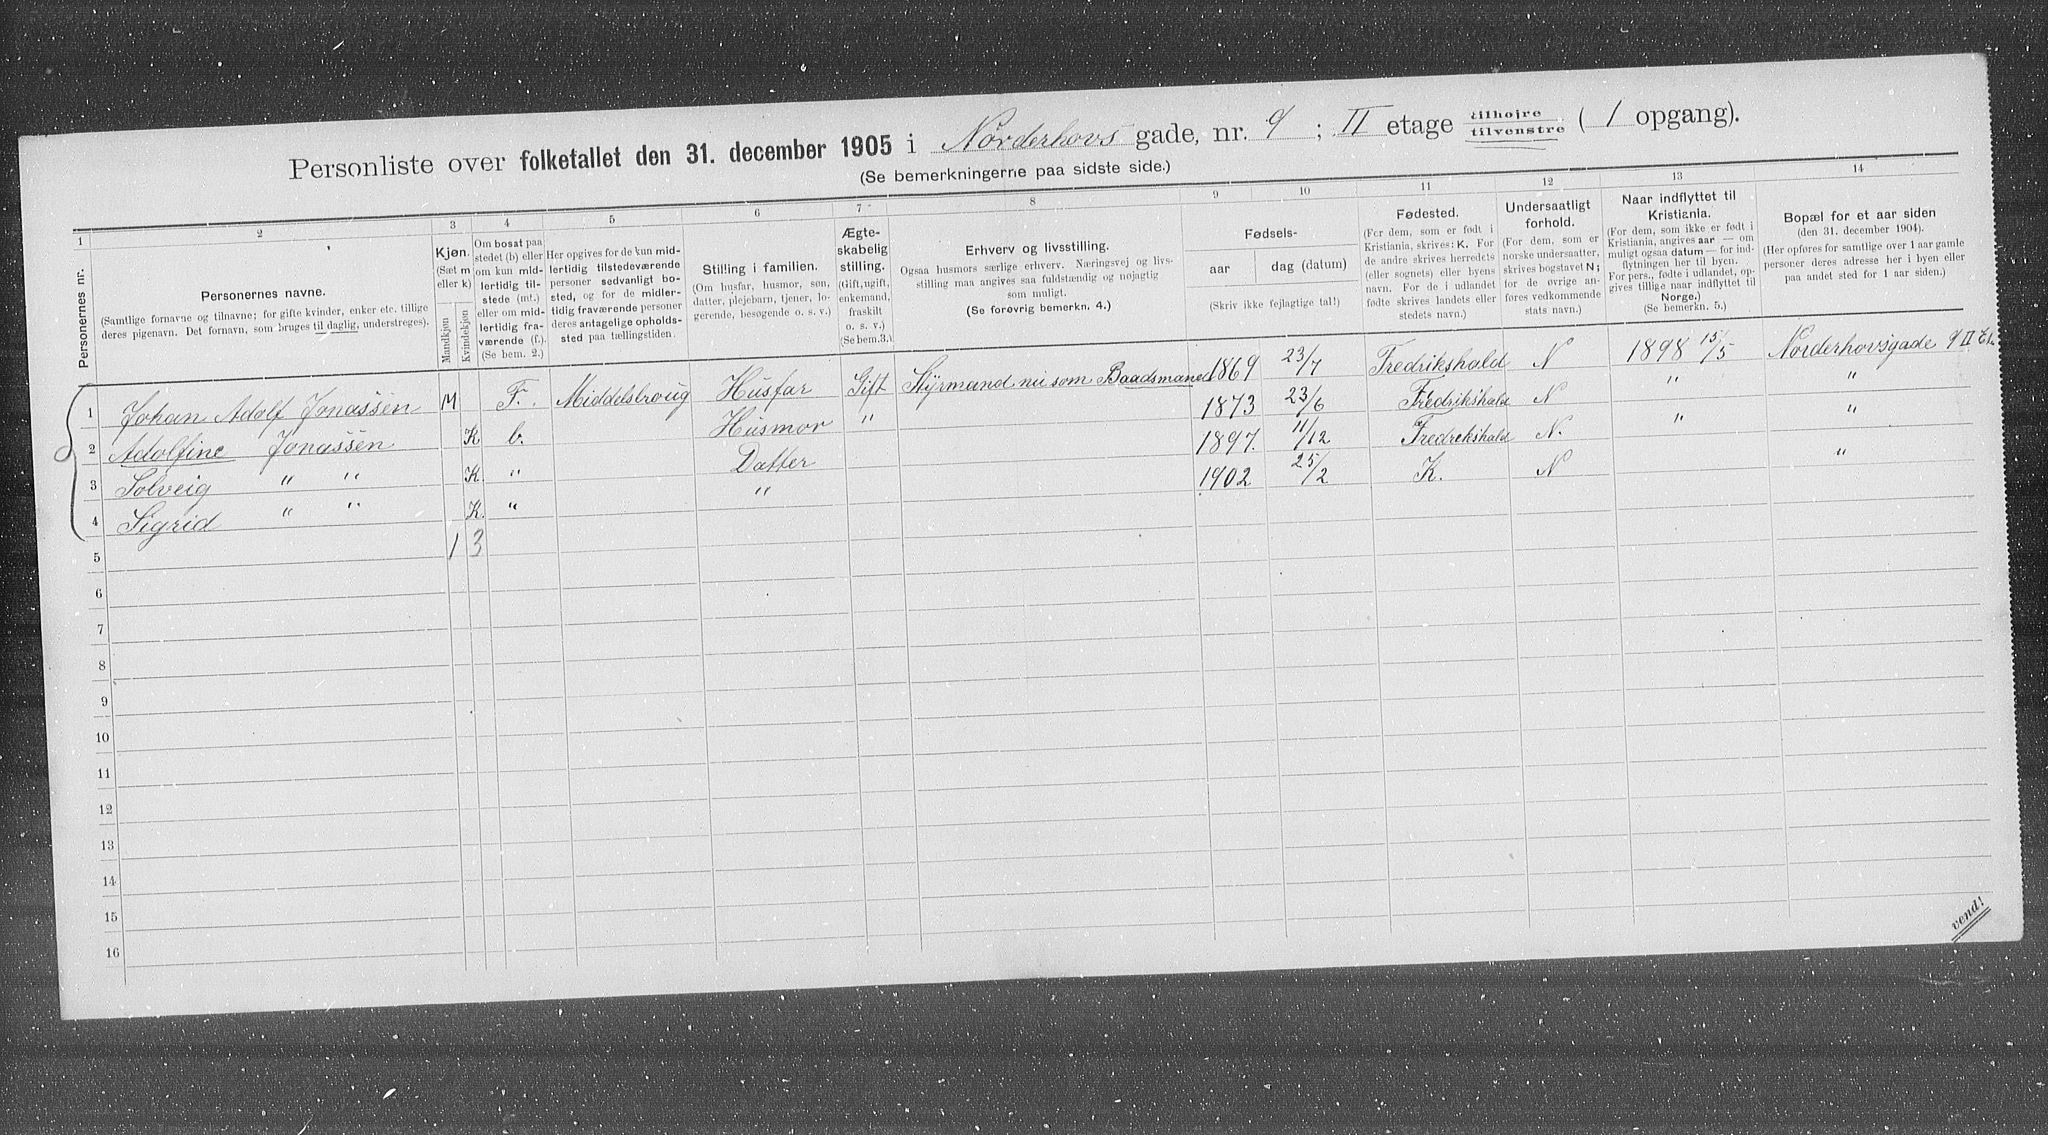 Personliste over folketallet den 31. december 1905 i Nørderhovs gade, nr. 9 ; II etage tilhøjre tilvenstre ( 1 opgang).
(Se bemerkningerne paa sidste side.)
1 2 3 4 5 6 7 8 9 10 11 12 13 14
Personernes nr.
Personernes navne.
(Samtlige fornavne og tilnavne; for gifte kvinder, enker etc. tillige
deres pigenavn. Det fornavn, som bruges til daglig, understreges).
Kjøn.
(Sæt m
eller k)
Mandkjøn
Kvindekjøn
Om bosat paa
stedet (b) eller
om kun mid-
lertidig til-
stede (mt.)
eller om mid-
lertidig fra-
værende (f.).
(Se bem. 2.)
Her opgives for de kun mid-
lertidig tilstedeværende
personer sedvanligt bo-
sted, og for de midler-
tidig fraværende personer
deres antagelige opholds-
sted paa tællingstiden.
Stilling i familien.
(Om husfar, husmor, søn,
datter, plejebarn, tjener, lo-
gerende, besøgende o. s. v.)
Ægte-
skabelig
stilling.
(Gift, ugift,
enkemand,
fraskilt
o. s. v.)
(Se bem.3.)
Erhverv og livsstilling.
Ogsaa husmors særlige erhverv. Næringsvej og livs-
stilling maa angives saa fuldstændig og nøjagtig
som muligt.
(Se forøvrig bemerkn. 4.)
Fødsels-
aar dag (datum)
(Skriv ikke fejlagtige tal!)
Fødested.
(For dem, som er født i
Kristiania, skrives: K. For
de andre skrives herredets
(eller sognets) eller byens
navn. For de i udlandet
fødte skrives landets eller
stedets navn.)
Undersaatligt
forhold.
(For dem, som er
norske undersaatter,
skrives bogstavet N;
for de øvrige an-
føres vedkommende
stats navn.)
Naar indflyttet til
Kristiania.
(For dem, som ikke er født i
Kristiania, angives aar — om
muligt ogsaa datum — for ind-
flytningen her til byen.
For pers., fødte i udlandet, op-
gives tillige naar indflyttet til
Norge.)
(Se bemerkn. 5.)
Bopæl for et aar siden
(den 31. december 1904).
(Her opføres for samtlige over 1 aar gamle
personer deres adresse her i byen eller
paa andet sted for 1 aar siden.)
1 Johan Adolf Jonassen M F. Middelsbroug Husfar Gift Styrmand nu som Baadsmand 1869 23/7 Fredrikshald N 1898 15/5 Norderhovsgade 9 II Et.
2 Adolfine Jonassen K b. Husmor " 1873 23/6 Fredrikshald N " "
3 Solveig " " K " Datter 1897. 11/12 Fredrikshald N. " "
4 Sigrid " " K " " 1902 25/2 K. N "
5 1 3
6
7
8
9
10
11
12
13
14
15
16
vend!